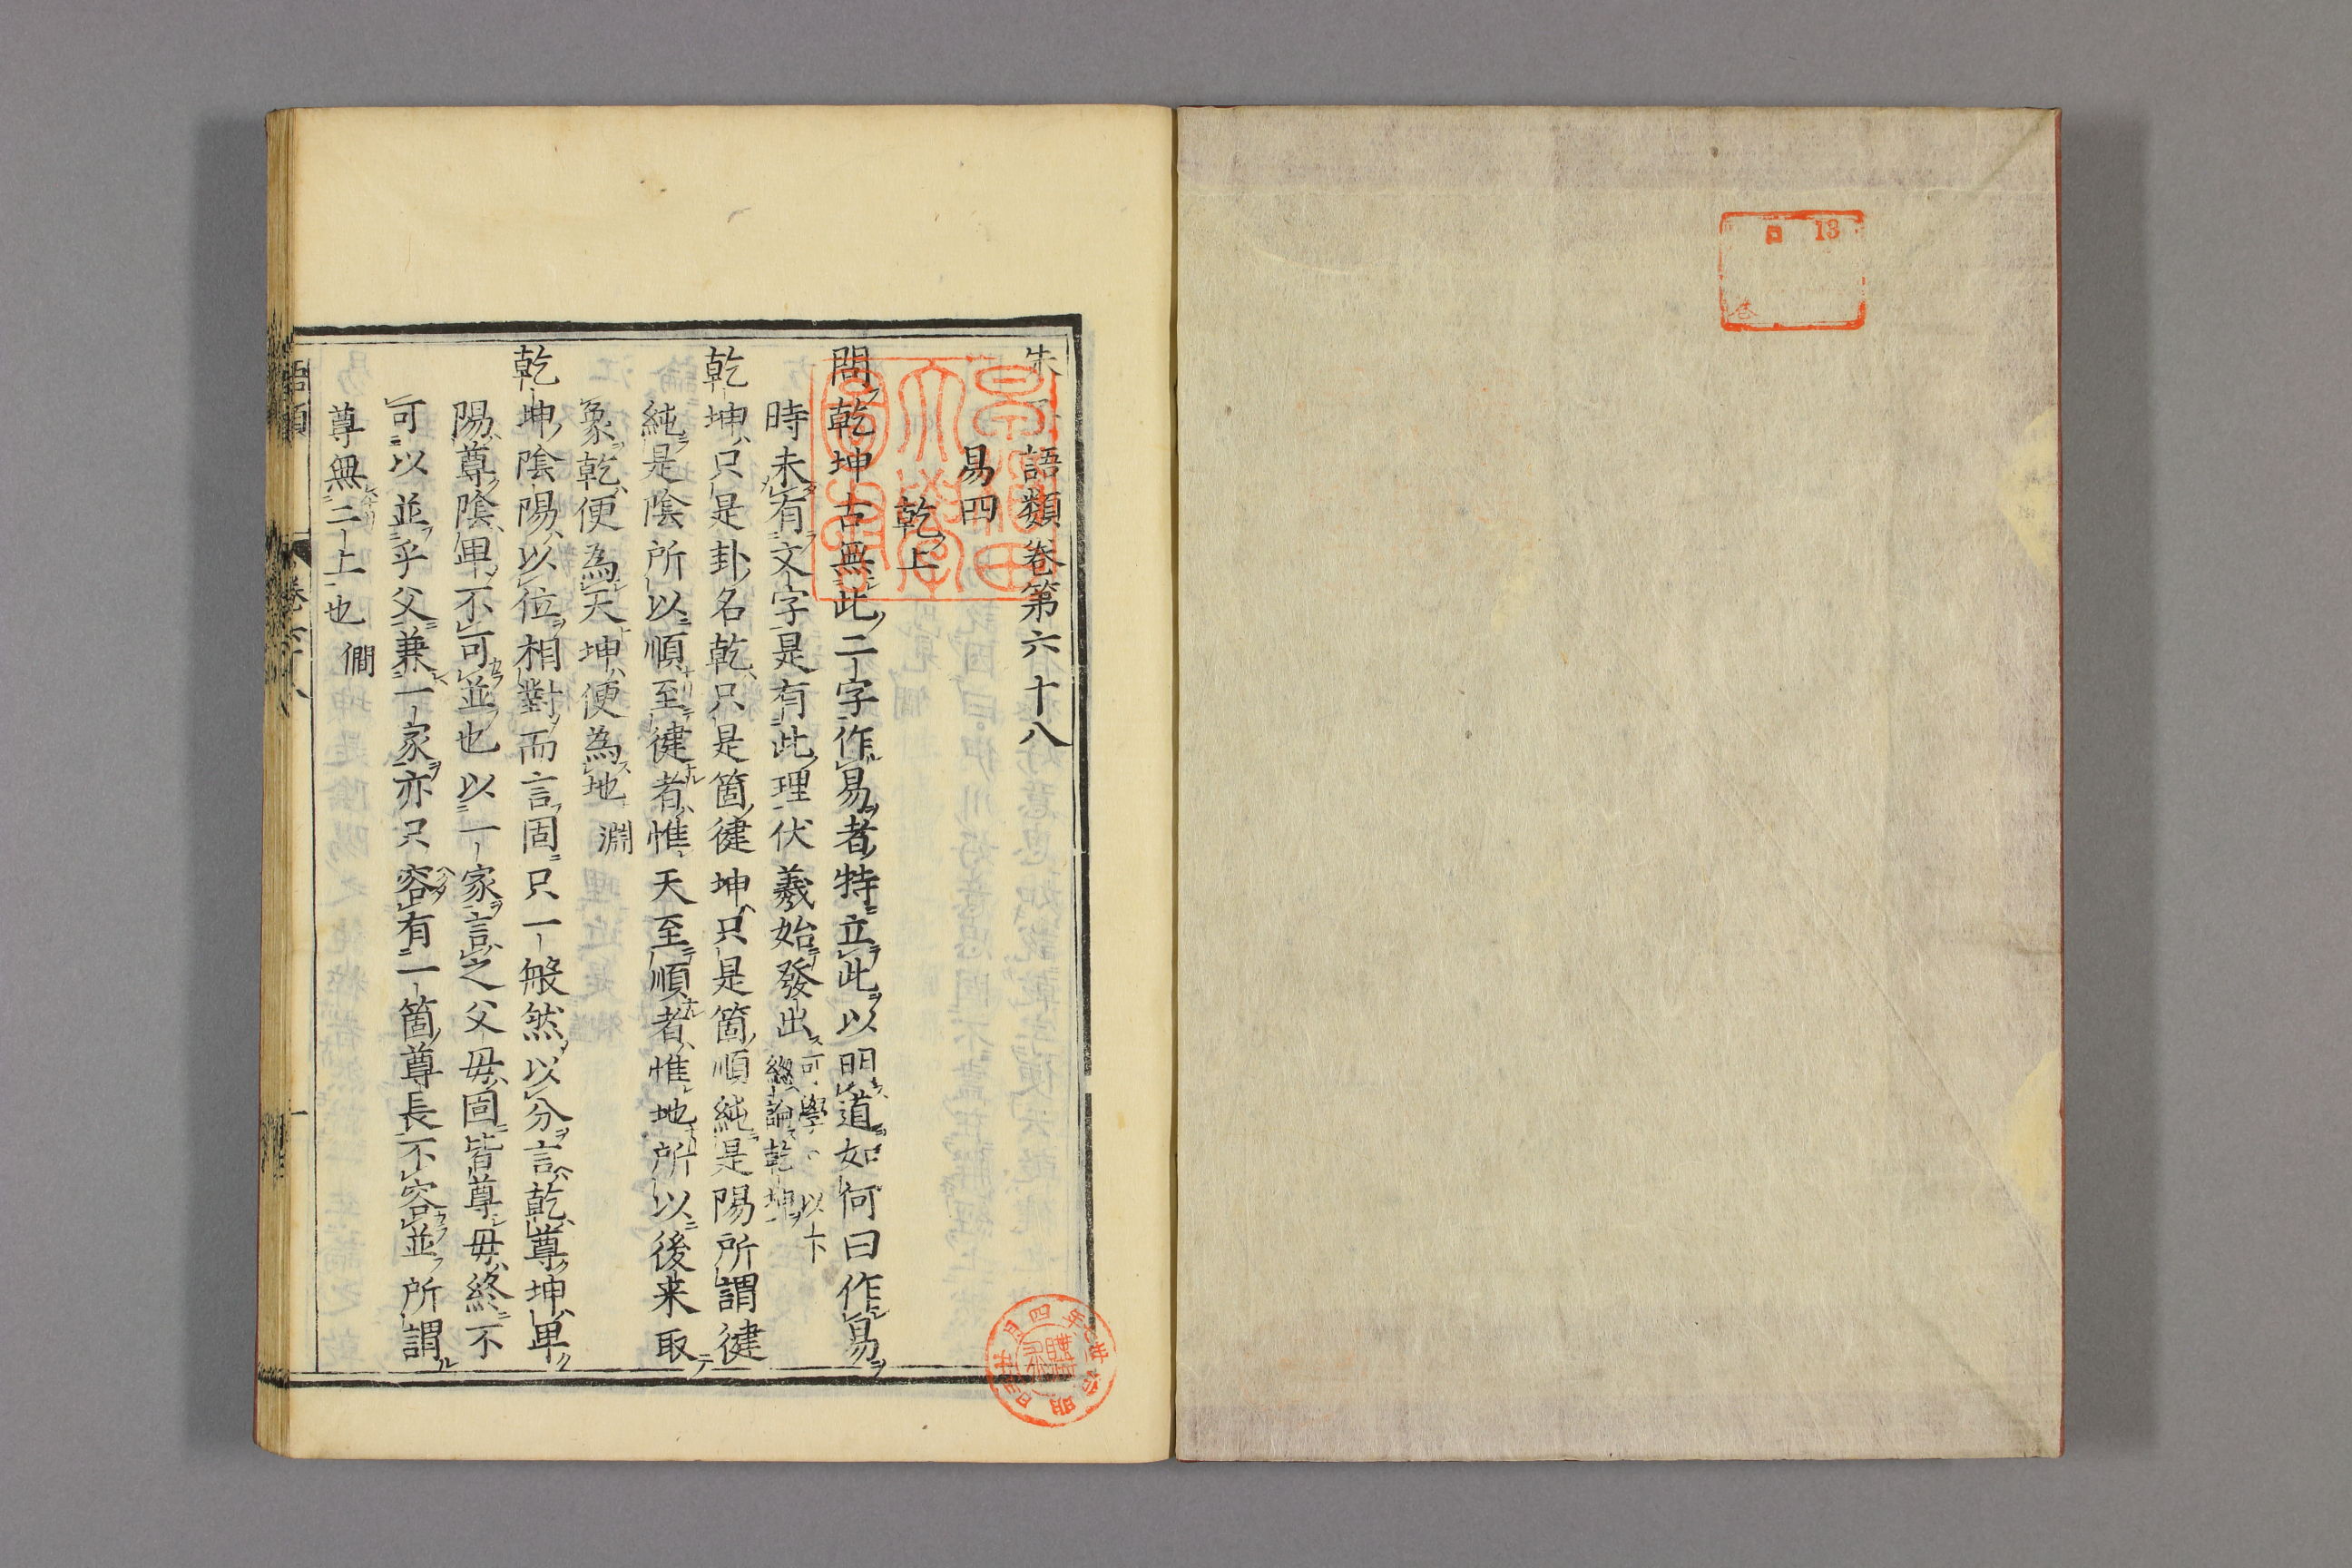 朱子語類卷第六十八
易四
乾上
問乾坤古無此二字作易者特立此以明道如何曰作易
時未有文字是有此理伏羲始發出可學 以下總論乾坤
乾坤只是卦名乾只是箇健坤只是箇順純是陽所謂健
純是陰所以順至健者惟天至順者惟地所以後来取
象乾便為天坤便為地 淵
乾坤陰陽以位相對而言固只一般然以分言乾尊坤卑
陽尊陰卑不可並也以一家言之父母固皆尊母終不
可以並乎父兼一家亦只容有一箇尊長不容並所謂
尊無二上也 僩
語類 卷六十八 一
13